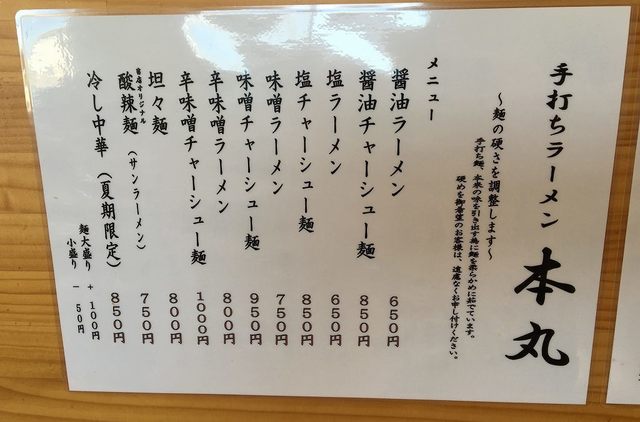 手打ちラーメン 本丸
～麺の硬さを調整します～
手打ち麺、本来の味を引き出す為に麺を柔らかめに茹でています。
硬めを御希望のお客様は、遠慮なくお申し付けください。
メニュー
醤油ラーメン 650円
醤油チャーシュー麺 850円
塩ラーメン 650円
塩チャーシュー麺 850円
味噌ラーメン 750円
味噌チャーシュー麺 950円
辛味噌ラーメン 800円
辛味噌チャーシュー麺 1000円
坦々麺 800円
当店オリジナル
酸辣麺(サンラーメン) 750円
冷し中華(夏期限定) 850円
麺大盛り +100円
小盛り -50円